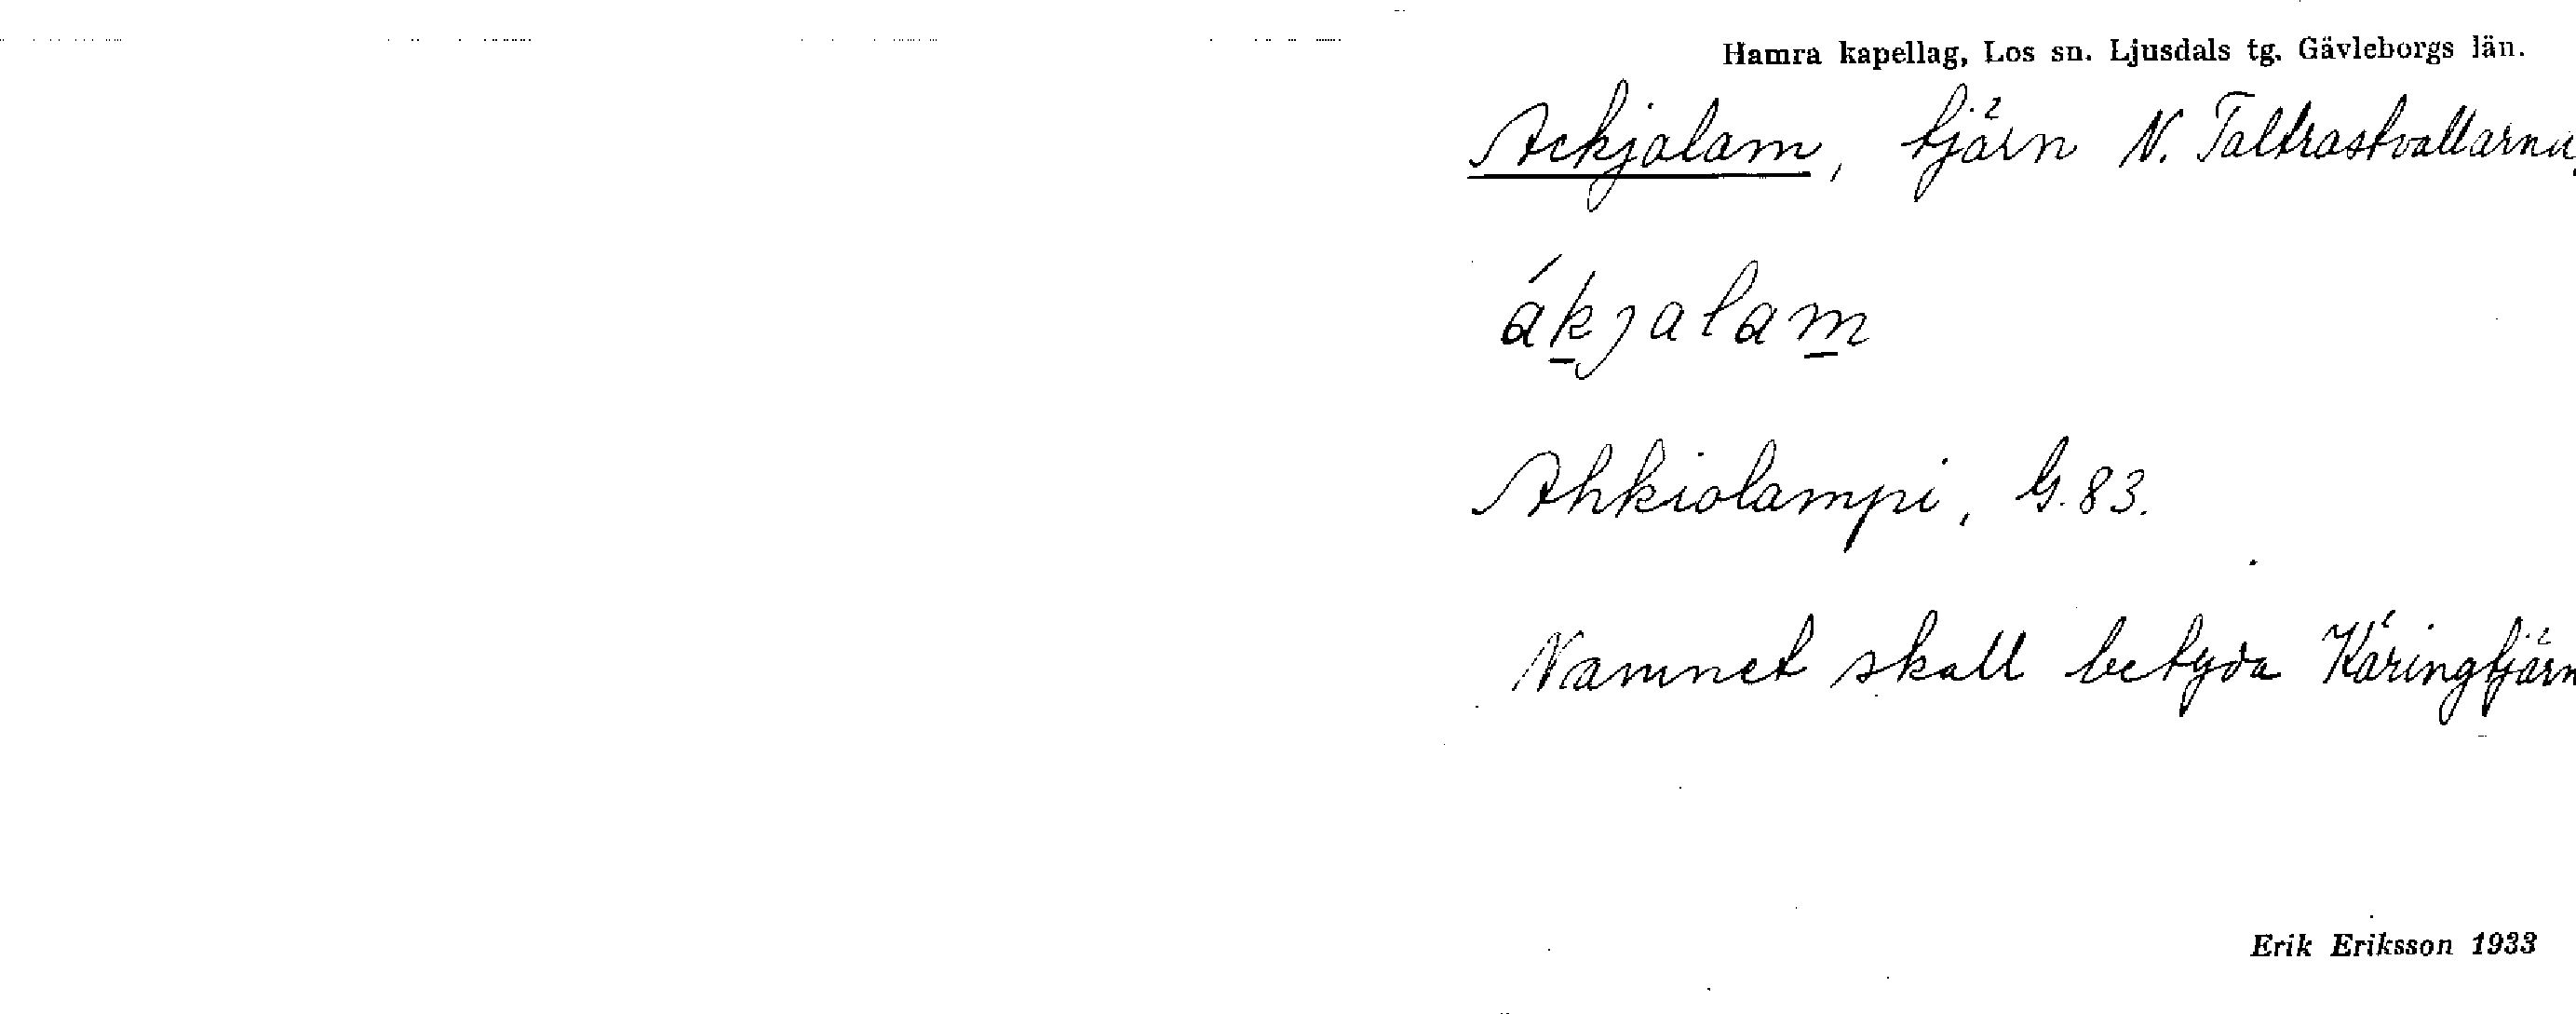 Hamra kapellag, Los sn. Ljusdals tg. Gävleborgs län.
Ackjalam, tjärn N. Taltrastvallarna,
ákjalam
Ahkiolampi, G. 83.
Namnet skall betyda Käringtjärn
Erik Eriksson 1933